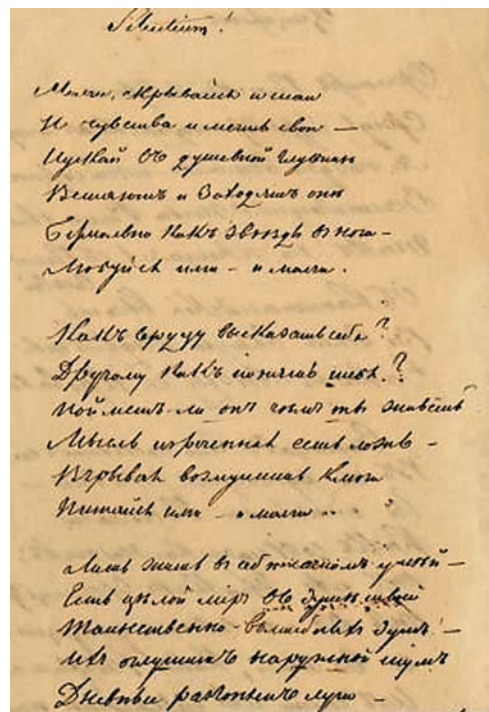 Silentium!
Молчи, скрывайся и таи
И чувства и мечты свои —
Пускай въ душевной глубинѣ
Встаютъ и заходятъ онѣ
Безмолвно какъ звѣзды въ ночи —
Любуйся ими — и молчи.
Какъ сердцу высказать себя?
Другому какъ понять тебя?
Пойметъ ли онъ чѣмъ ты живёшь
Мысль изреченная есть ложь —
Взрывая возмутишь ключи
Питайся ими — и молчи...
Лишь жить въ себѣ самомъ умѣй —
Есть цѣлой міръ въ душѣ твоей
Таинственно-волшебныхъ думъ —
Ихъ оглушитъ наружной шумъ
Дневные разгонятъ лучи —